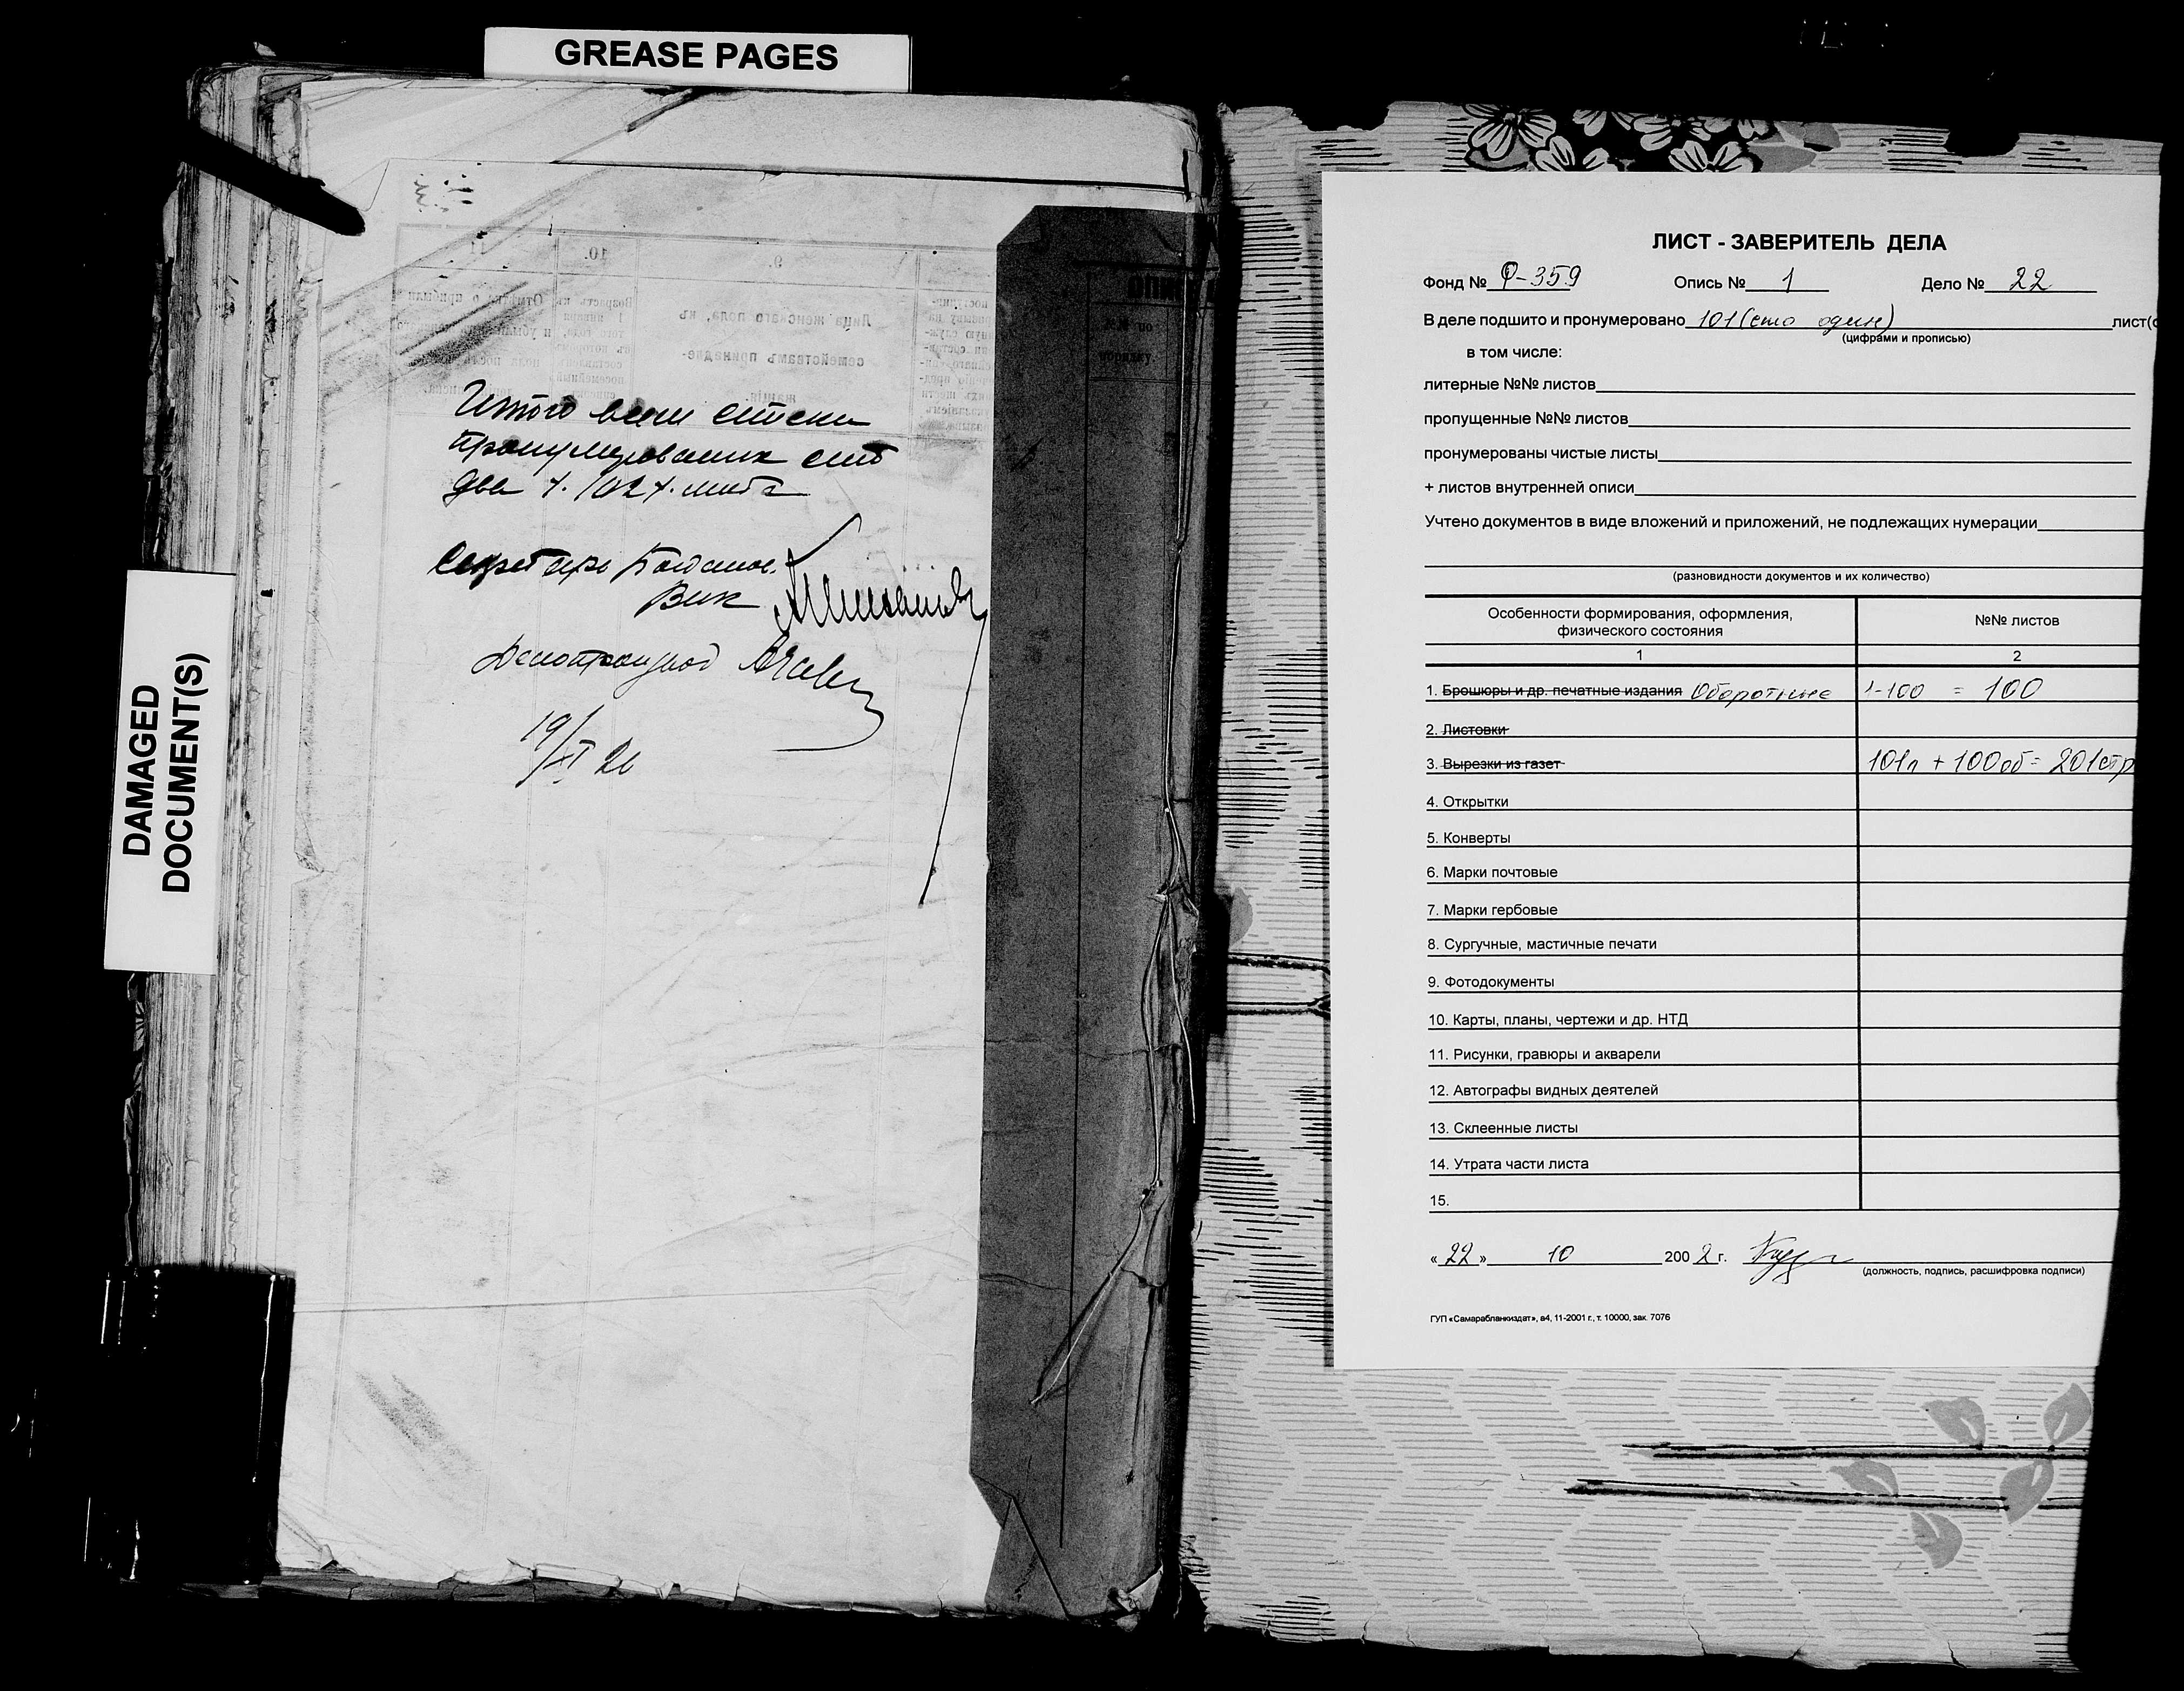 GREASE PAGES
DAMAGED
DOCUMENT(S)
10.
9.
Лица женскаго пола, къ
семействамъ принадле-
жащія.
Итого
пронумерованных сто
два /. 102 /. листа
Секретарь
Вик
Делопроизвод
19/XI 26
ЛИСТ - ЗАВЕРИТЕЛЬ ДЕЛА
Фонд № Р-359 Опись № 1 Дело № 22
В деле подшито и пронумеровано 101 (сто один) лист(о
(цифрами и прописью)
в том числе:
литерные №№ листов
пропущенные №№ листов
пронумерованы чистые листы
+ листов внутренней описи
Учтено документов в виде вложений и приложений, не подлежащих нумерации
(разновидности документов и их количество)
Особенности формирования, оформления, №№ листов
физического состояния
1 2
1. Брошюры и др. печатные издания Оборотные 1-100 = 100
2. Листовки
3. Вырезки из газет 101л + 100об = 201стр
4. Открытки
5. Конверты
6. Марки почтовые
7. Марки гербовые
8. Сургучные, мастичные печати
9. Фотодокументы
10. Карты, планы, чертежи и др. НТД
11. Рисунки, гравюры и акварели
12. Автографы видных деятелей
13. Склеенные листы
14. Утрата части листа
15.
«22» 10 2002 г.
(должность, подпись, расшифровка подписи)
ГУП «Самарабланкиздат», а4, 11-2001 г., т. 10000, зак. 7076